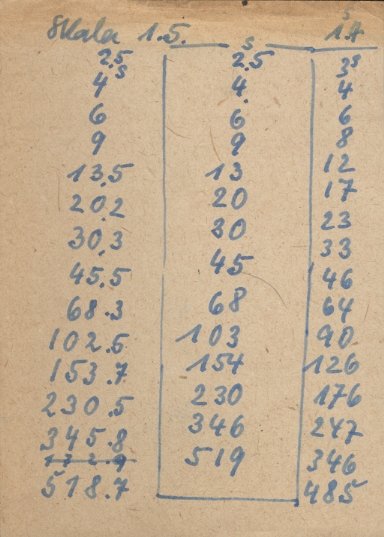 Skala 1.5. s 1.4 s
2.5 s 2.5 3 s
4 4 4
6 6 6
9 9 8
13,5 13 12
20,2 20 17
30,3 30 23
45,5 45 33
68.3 68 46
102.5 103 64
153.7 154 90
230.5 230 126
345.8 346 176
172.9 519 247
518.7 346
485